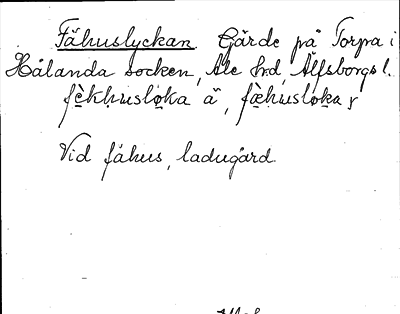 Fähuslyckan Gärde på Torpa i
Hålanda socken, Ale hd, Älfsborgs l.
fèkhusloka ä, fæhusloka
Vid fähus, ladugård